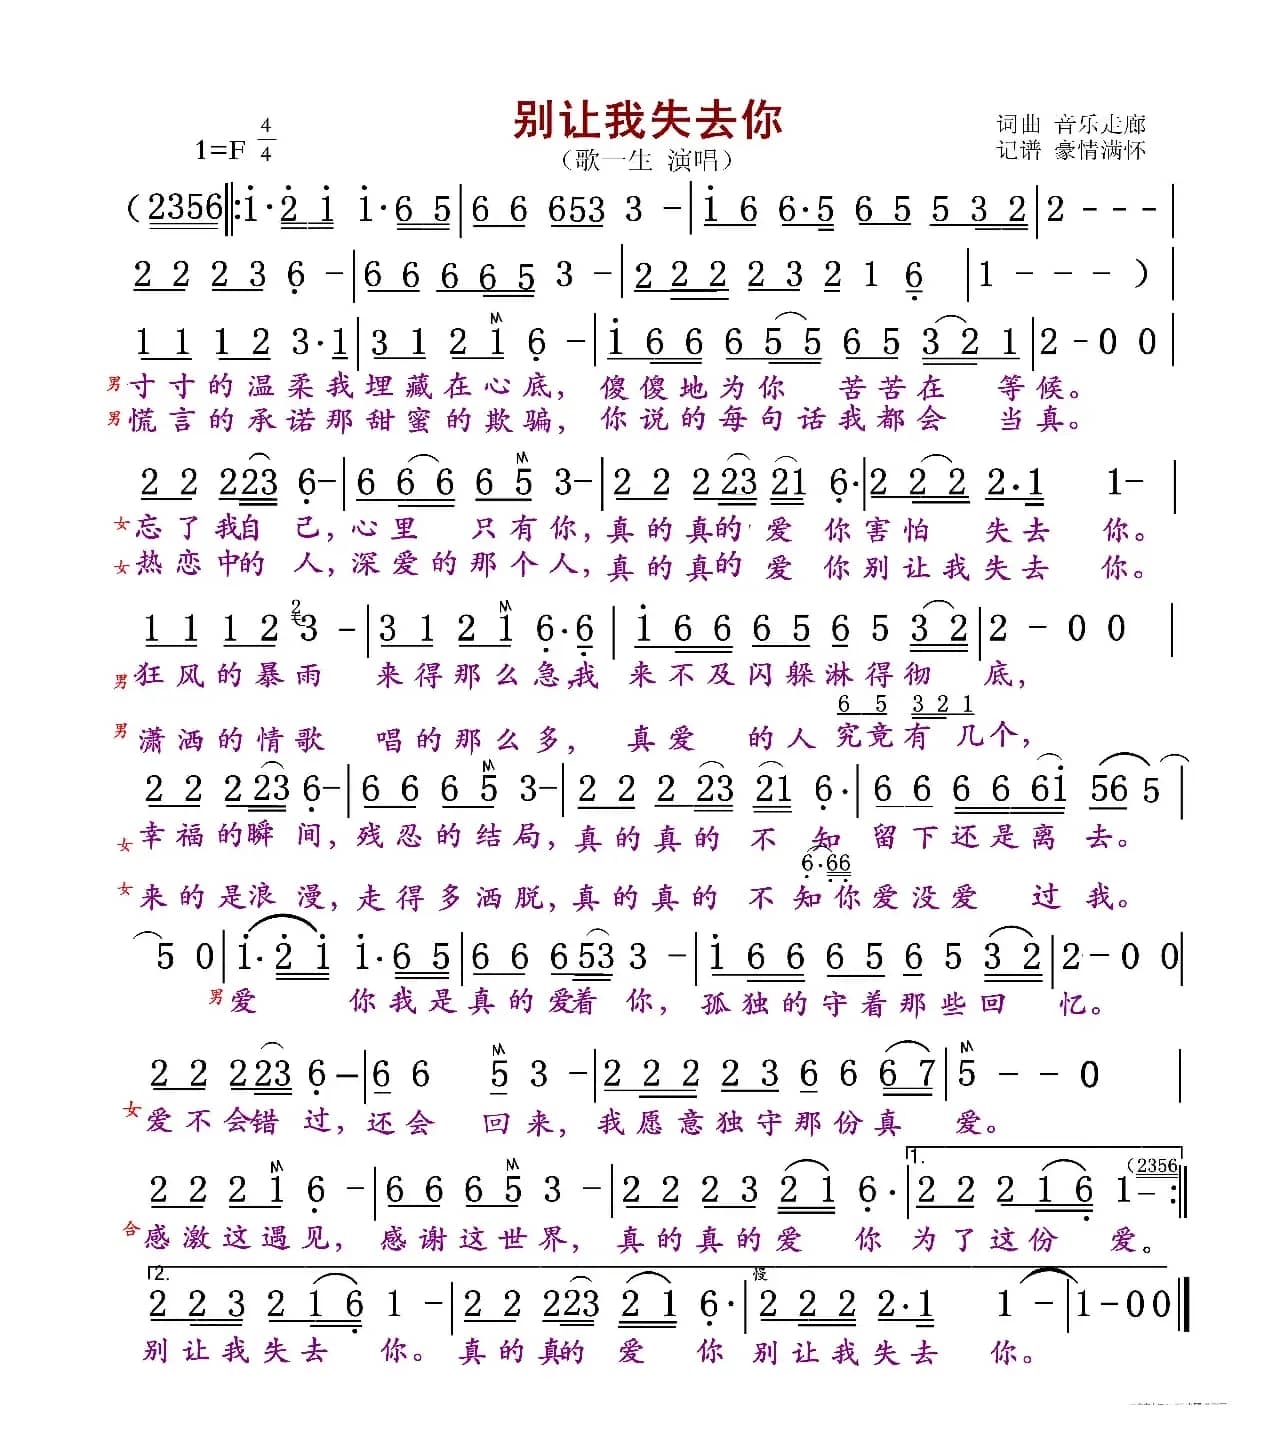 别让我失去你
1=F 4/4
（歌一生 演唱）
词曲 音乐走廊
记谱 豪情满怀
（2356‖:i·2 i i·6 5|6 6 653 3 -|i 6 6·5 6 5 5 3 2|2 - - -|
2 2 2 3 6 -|6 6 6 6 5 3 -|2 2 2 2 3 2 1 6|1 - - -）|
1 1 1 2 3·1|3 1 2 1 6 -|i 6 6 6 5 5 6 5 3 2 1|2 - 0 0|
男 寸寸的温柔我埋藏在心底，傻傻地为你 苦苦在 等候。
男 慌言的承诺那甜蜜的欺骗，你说的每句话我都会 当真。
2 2 2 23 6 -|6 6 6 6 5 3 -|2 2 2 23 21 6·|2 2 2 2·1 1 -|
女 忘了我自 己，心里 只有你，真的真的 爱 你害怕 失去 你。
女 热恋中的 人，深爱的那个人，真的真的 爱 你别让我失去 你。
1 1 1 2 2 3 -|3 1 2 1 6·6|i 6 6 6 5 6 5 3 2|2 - 0 0|
男 狂风的暴雨 来得那么急，我 来不及闪躲淋得彻 底，
6 5 3 2 1
男 潇洒的情歌 唱的那么多， 真爱 的人 究竟有 几个，
2 2 2 23 6 -|6 6 6 5 3 -|2 2 2 23 21 6·|6 6 6 6 6i 56 5|
女 幸福的瞬 间，残忍的结局，真的真的 不 知 留下还是离 去。
6·66
女 来的是浪 漫，走得多洒脱，真的真的 不知你爱没爱 过我。
5 0|i·2 i i·6 5|6 6 6 53 3 -|i 6 6 6 5 6 5 3 2|2 - 0 0|
男 爱 你我是真的爱着 你，孤独的守着那些回 忆。
2 2 2 23 6 -|6 6 5 3 -|2 2 2 2 2 3 6 6 6 7|5 - - 0|
女 爱不会错 过，还会 回来，我愿意独守那份真 爱。
2 2 2 1 6 -|6 6 6 5 3 -|2 2 2 3 2 1 6·|1. 2 2 2 1 6 1 - （2356:‖
合 感激这遇见，感谢这世界，真的真的爱 你 为了这份 爱。
2. 慢
2 2 3 2 1 6 1 -|2 2 2 23 2 1 6·|2 2 2 2·1 1 -|1 - 0 0‖
别让我失去 你。真的真的 爱 你 别让我失去 你。